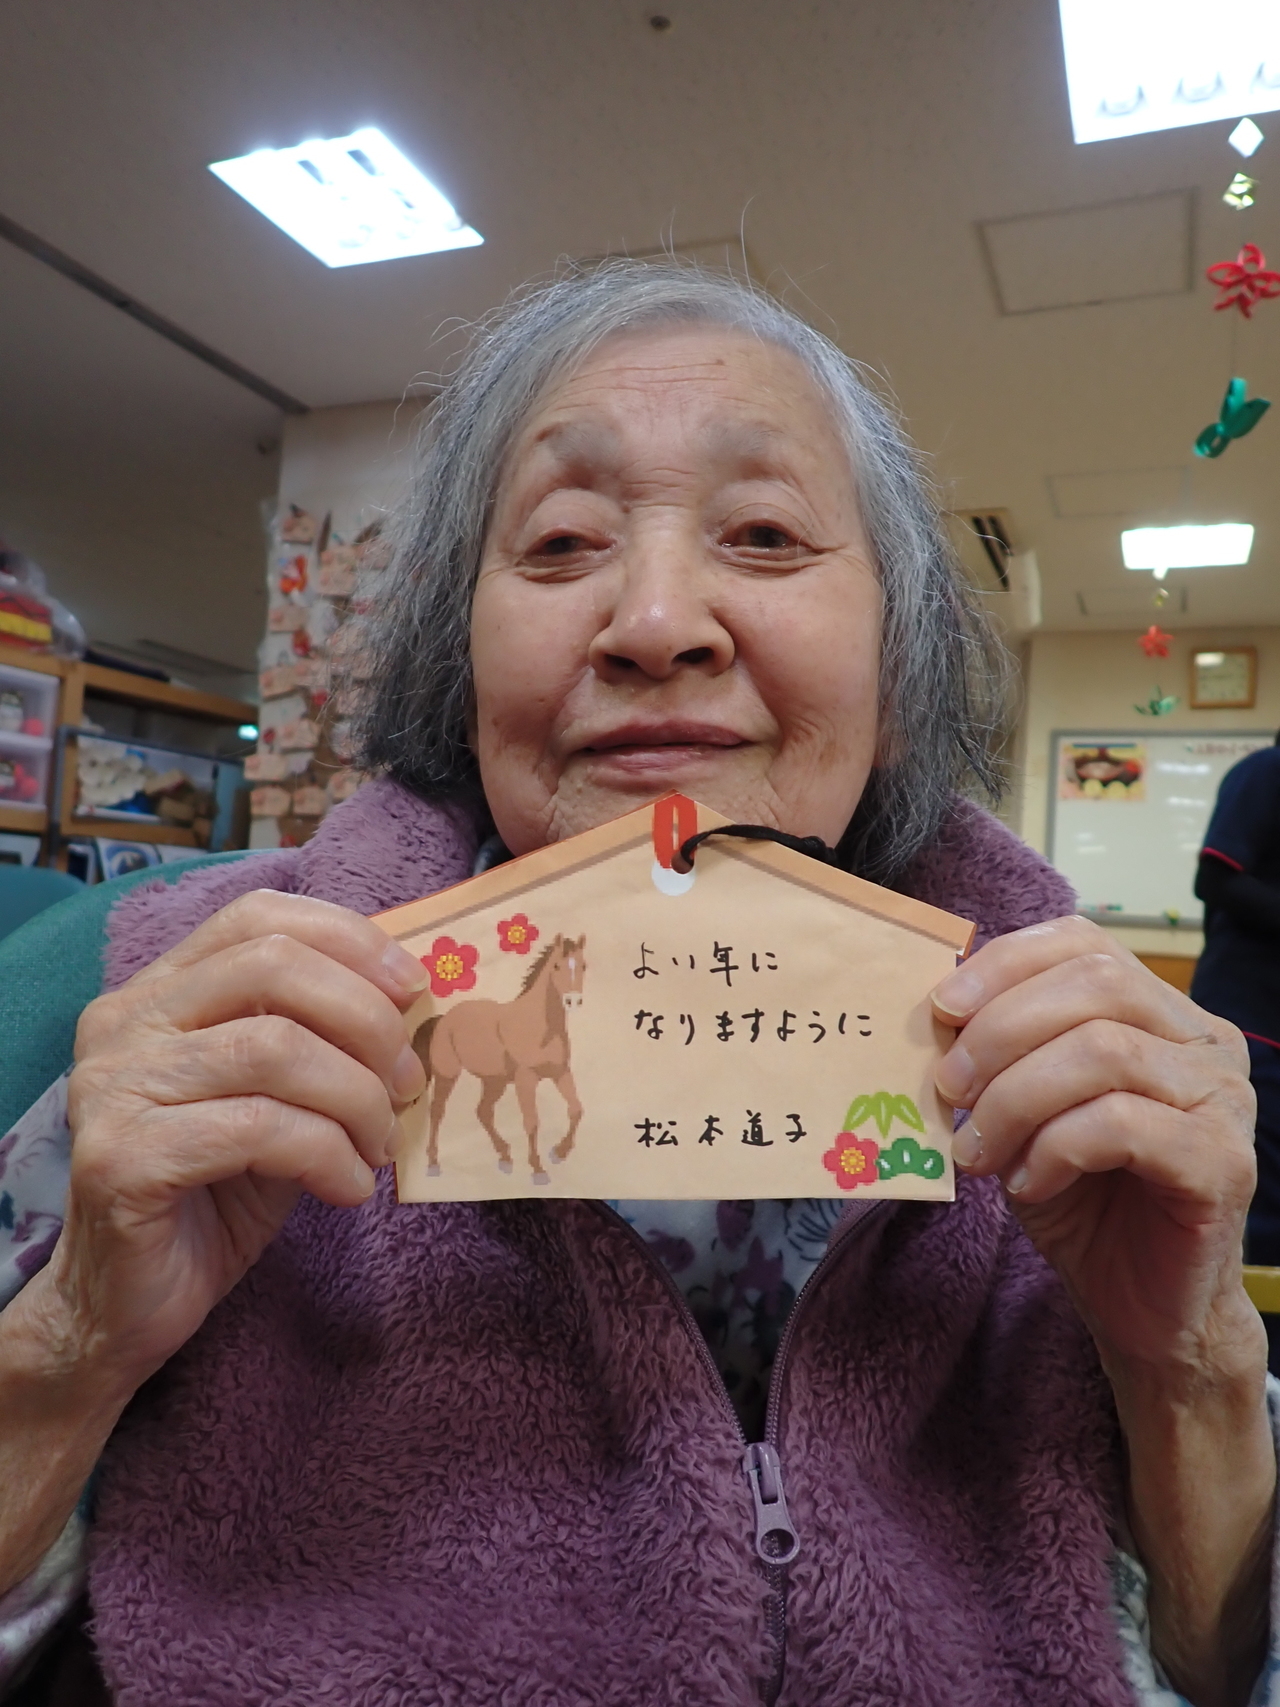 よい年に
なりますように
松本道子